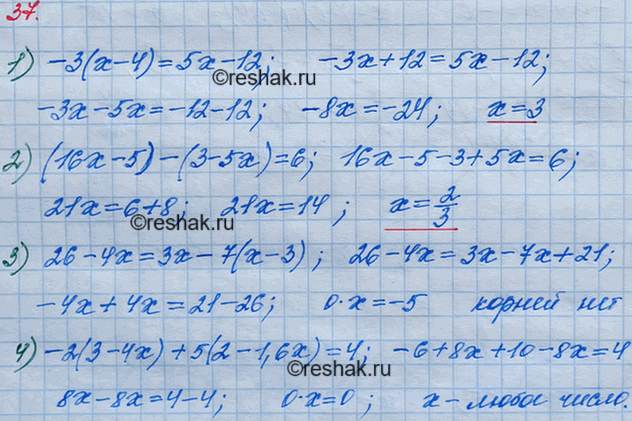 37.
1) -3(x-4)=5x-12;  -3x+12=5x-12;
©reshak.ru
-3x-5x=-12-12;  -8x=-24;  x=3
2) (16x-5)-(3-5x)=6;  16x-5-3+5x=6;
21x=6+8;  21x=14;  x=2/3
©reshak.ru
3) 26-4x=3x-7(x-3);  26-4x=3x-7x+21;
-4x+4x=21-26;  0·x=-5  корней нет
4) -2(3-4x)+5(2-1,6x)=4;  -6+8x+10-8x=4
©reshak.ru
8x-8x=4-4;  0·x=0;  x-любое число.